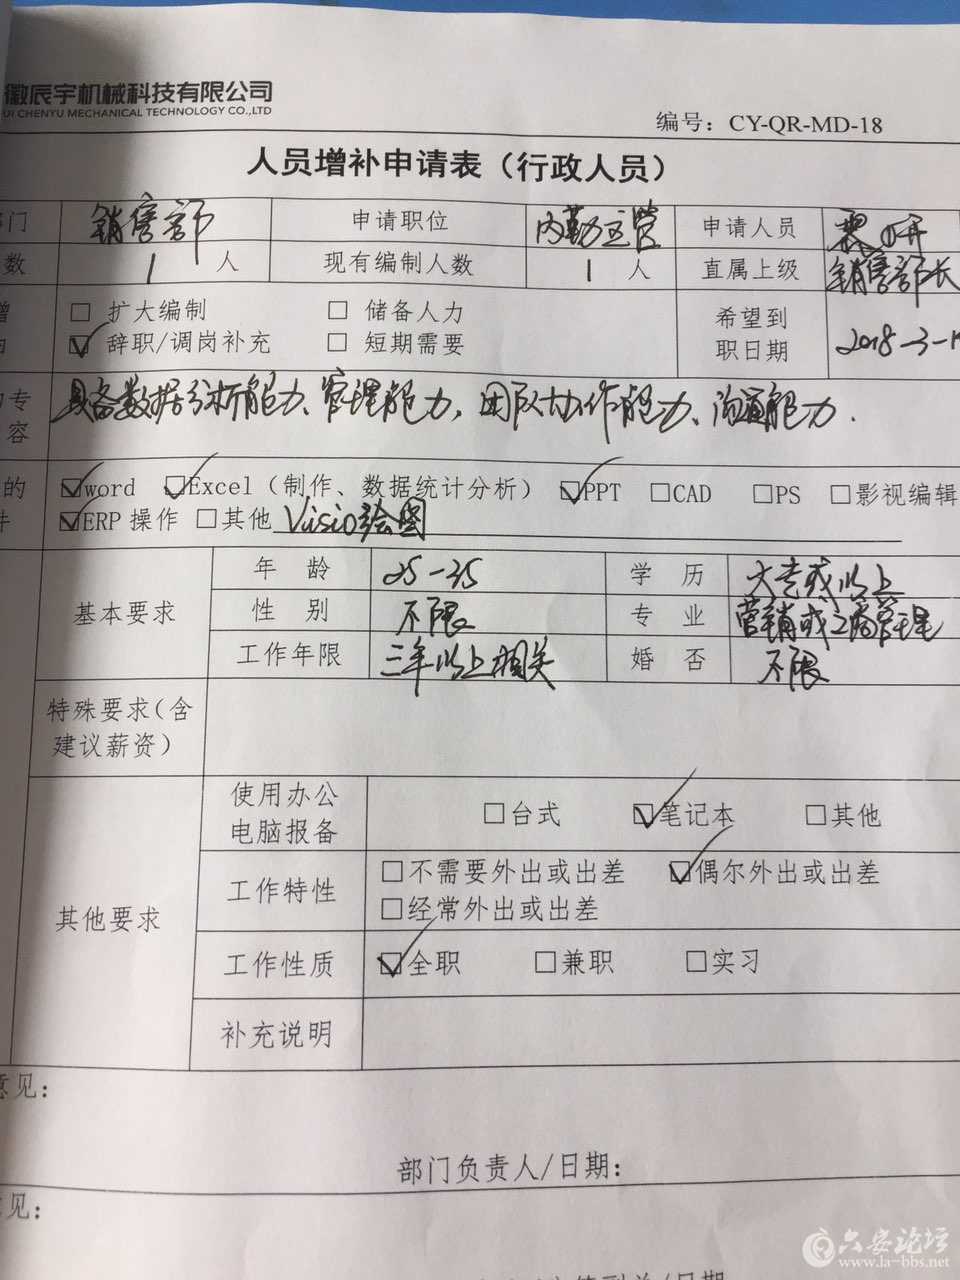 徽辰宇机械科技有限公司
UI CHENYU MECHANICAL TECHNOLOGY CO.,LTD
编号：CY-QR-MD-18
人员增补申请表（行政人员）
门 销售部 申请职位 内勤主管 申请人员
数 1 人 现有编制人数 1 人 直属上级 销售部长
增 □ 扩大编制 □ 储备人力 希望到
☑ 辞职/调岗补充 □ 短期需要 职日期 2018-3-1
专 具备数据分析能力、管理能力，团队协作能力、沟通能力.
容
的 ☑word ☑Excel（制作、数据统计分析） ☑PPT □CAD □PS □影视编辑
件 ☑ERP 操作 □其他 Visio绘图
基本要求 年 龄 25-35 学 历 大专或以上
性 别 不限 专 业 营销或工商管理
工作年限 三年以上相关 婚 否 不限
特殊要求（含
建议薪资）
其他要求 使用办公
电脑报备 □台式 ☑笔记本 □其他
工作特性 □不需要外出或出差 ☑偶尔外出或出差
□经常外出或出差
工作性质 ☑全职 □兼职 □实习
补充说明
意见：
部门负责人/日期：
意见：
六安论坛
www.la-bbs.net